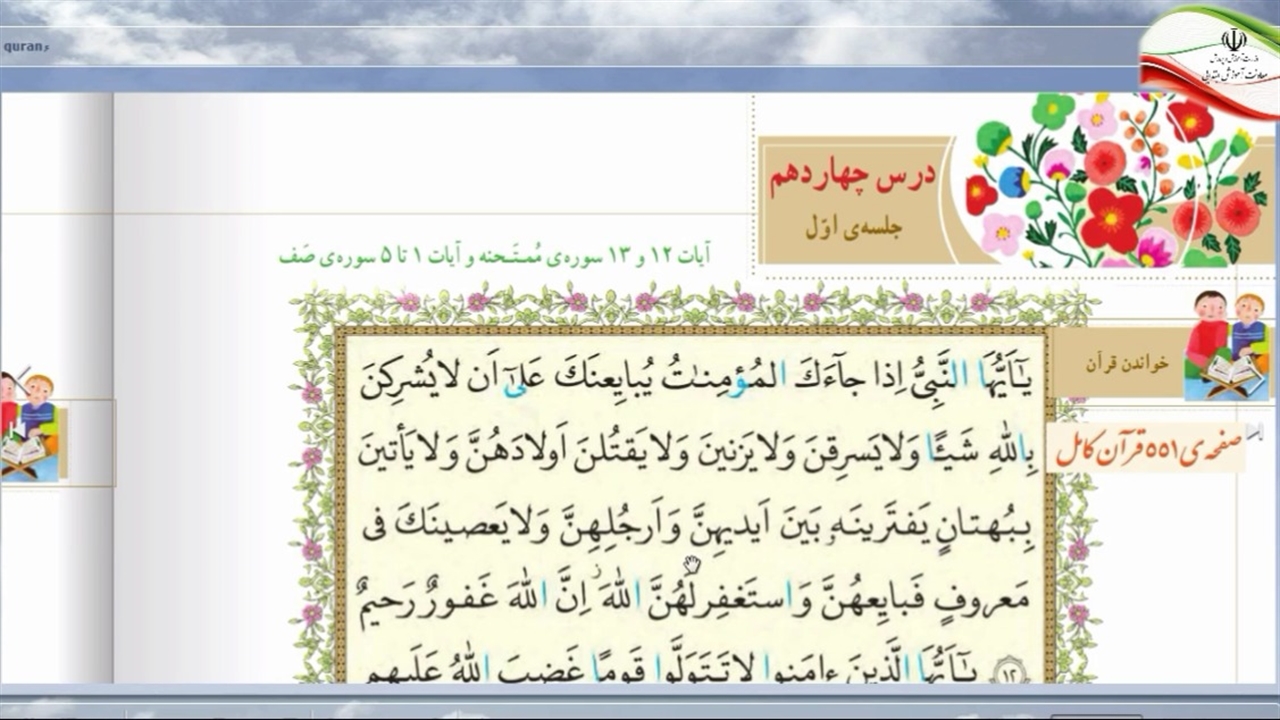 quran۶
وزارت آموزش و پرورش
معاونت آموزش ابتدایی
درس چهاردهم
جلسه‌ی اوّل
آیات ۱۲ و ۱۳ سوره‌ی مُمتَحنه و آیات ۱ تا ۵ سوره‌ی صَف
خواندن قرآن
صفحه‌ی ۵۵۱ قرآن کامل
يـٰٓاَيُّهَا النَّبِيُّ اِذا جآءَكَ المُؤمِنـٰتُ يُبايِعنَكَ عَلىٰٓ اَن لا يُشرِكنَ
بِاللّٰهِ شَيـًٔا وَلا يَسرِقنَ وَلا يَزنينَ وَلا يَقتُلنَ اَولادَهُنَّ وَلا يَأتينَ
بِبُهتانٍ يَفتَرينَهٗ بَينَ اَيديهِنَّ وَاَرجُلِهِنَّ وَلا يَعصينَكَ فى
مَعروفٍ فَبايِعهُنَّ وَاستَغفِر لَهُنَّ اللّٰهَ ۚ اِنَّ اللّٰهَ غَفورٌ رَحيمٌ
﴿۱۲﴾ يـٰٓاَيُّهَا الَّذينَ ءامَنوا لا تَتَوَلَّوا قَومًا غَضِبَ اللّٰهُ عَلَيهِم